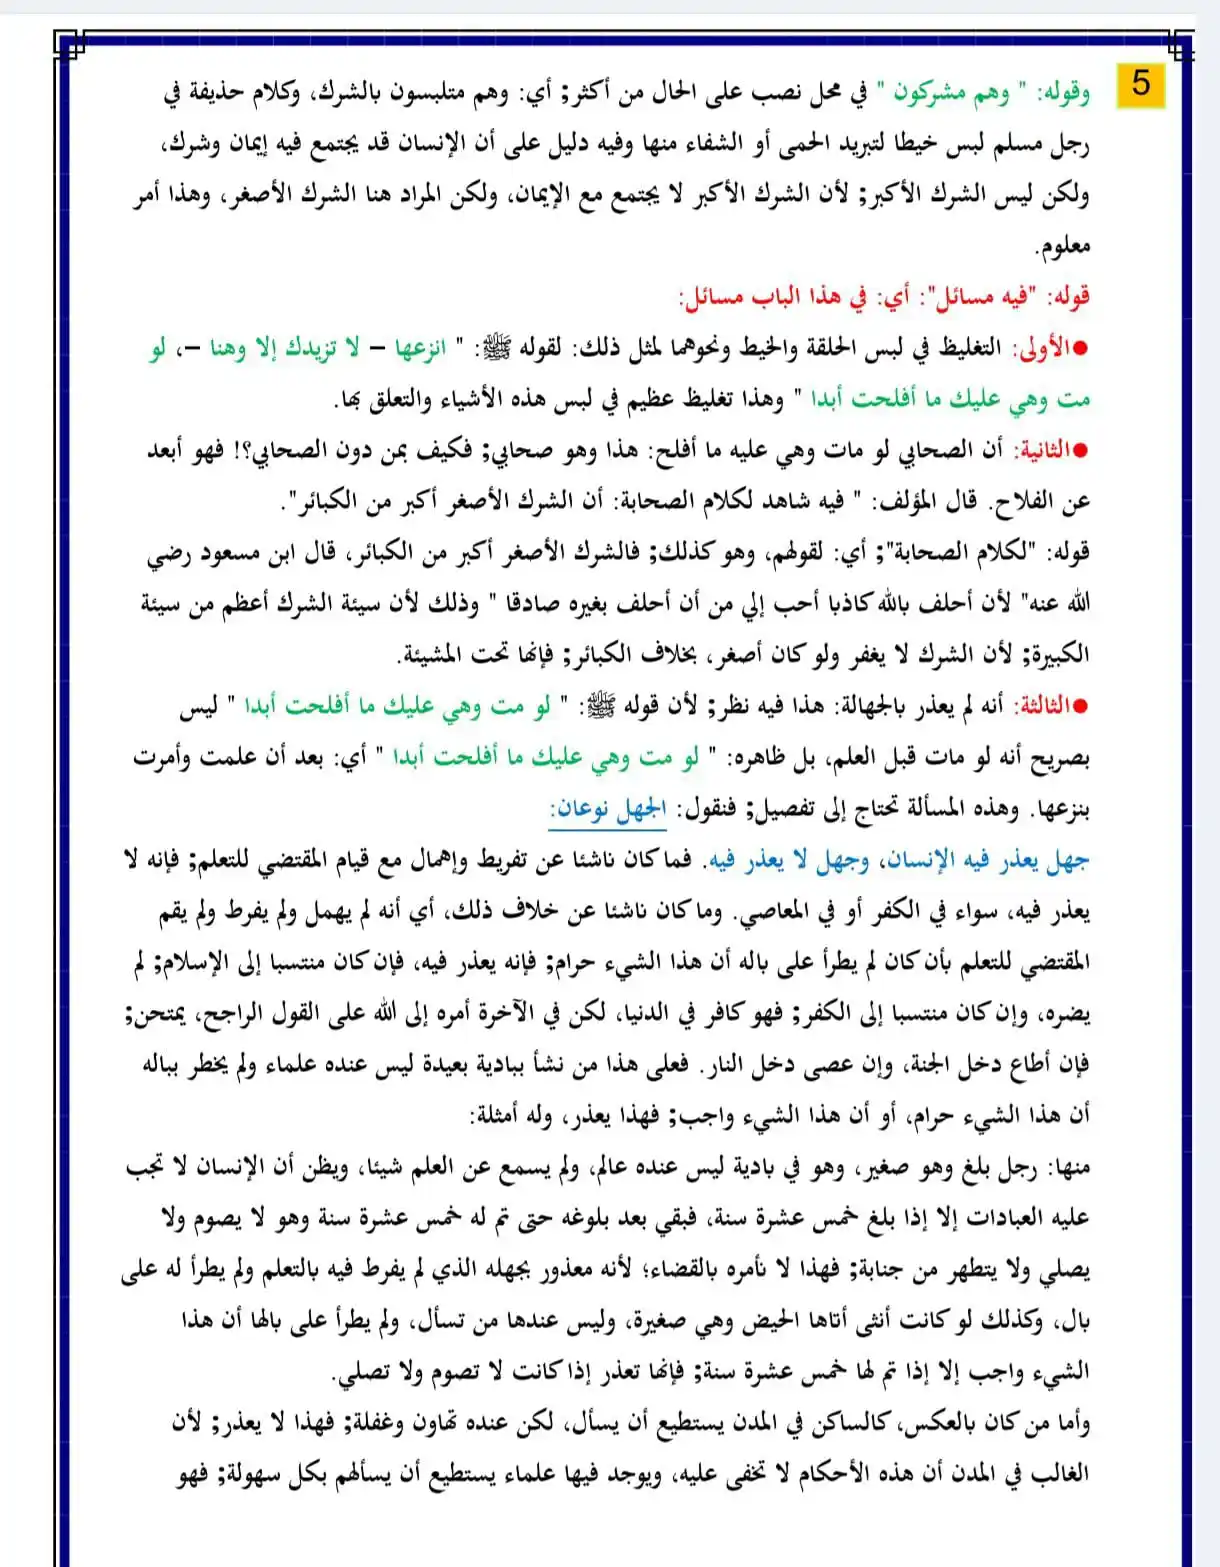 5
وقوله: " وهم مشركون " في محل نصب على الحال من أكثر; أي: وهم متلبسون بالشرك، وكلام حذيفة في
رجل مسلم لبس خيطا لتبريد الحمى أو الشفاء منها وفيه دليل على أن الإنسان قد يجتمع فيه إيمان وشرك،
ولكن ليس الشرك الأكبر; لأن الشرك الأكبر لا يجتمع مع الإيمان، ولكن المراد هنا الشرك الأصغر، وهذا أمر
معلوم.
قوله: "فيه مسائل": أي: في هذا الباب مسائل:
●الأولى: التغليظ في لبس الحلقة والخيط ونحوهما لمثل ذلك: لقوله ﷺ: " انزعها – لا تزيدك إلا وهنا –، لو
مت وهي عليك ما أفلحت أبدا " وهذا تغليظ عظيم في لبس هذه الأشياء والتعلق بها.
●الثانية: أن الصحابي لو مات وهي عليه ما أفلح: هذا وهو صحابي; فكيف بمن دون الصحابي؟! فهو أبعد
عن الفلاح. قال المؤلف: " فيه شاهد لكلام الصحابة: أن الشرك الأصغر أكبر من الكبائر".
قوله: "لكلام الصحابة"; أي: لقولهم، وهو كذلك; فالشرك الأصغر أكبر من الكبائر، قال ابن مسعود رضي
الله عنه" لأن أحلف بالله كاذبا أحب إلي من أن أحلف بغيره صادقا " وذلك لأن سيئة الشرك أعظم من سيئة
الكبيرة; لأن الشرك لا يغفر ولو كان أصغر، بخلاف الكبائر; فإنها تحت المشيئة.
●الثالثة: أنه لم يعذر بالجهالة: هذا فيه نظر; لأن قوله ﷺ: " لو مت وهي عليك ما أفلحت أبدا " ليس
بصريح أنه لو مات قبل العلم، بل ظاهره: " لو مت وهي عليك ما أفلحت أبدا " أي: بعد أن علمت وأمرت
بنزعها. وهذه المسألة تحتاج إلى تفصيل; فنقول: الجهل نوعان:
جهل يعذر فيه الإنسان، وجهل لا يعذر فيه. فما كان ناشئا عن تفريط وإهمال مع قيام المقتضي للتعلم; فإنه لا
يعذر فيه، سواء في الكفر أو في المعاصي. وما كان ناشئا عن خلاف ذلك، أي أنه لم يهمل ولم يفرط ولم يقم
المقتضي للتعلم بأن كان لم يطرأ على باله أن هذا الشيء حرام; فإنه يعذر فيه، فإن كان منتسبا إلى الإسلام; لم
يضره، وإن كان منتسبا إلى الكفر; فهو كافر في الدنيا، لكن في الآخرة أمره إلى الله على القول الراجح، يمتحن;
فإن أطاع دخل الجنة، وإن عصى دخل النار. فعلى هذا من نشأ ببادية بعيدة ليس عنده علماء ولم يخطر بباله
أن هذا الشيء حرام، أو أن هذا الشيء واجب; فهذا يعذر، وله أمثلة:
منها: رجل بلغ وهو صغير، وهو في بادية ليس عنده عالم، ولم يسمع عن العلم شيئا، ويظن أن الإنسان لا تجب
عليه العبادات إلا إذا بلغ خمس عشرة سنة، فبقي بعد بلوغه حتى تم له خمس عشرة سنة وهو لا يصوم ولا
يصلي ولا يتطهر من جنابة; فهذا لا نأمره بالقضاء؛ لأنه معذور بجهله الذي لم يفرط فيه بالتعلم ولم يطرأ له على
بال، وكذلك لو كانت أنثى أتاها الحيض وهي صغيرة، وليس عندها من تسأل، ولم يطرأ على بالها أن هذا
الشيء واجب إلا إذا تم لها خمس عشرة سنة; فإنها تعذر إذا كانت لا تصوم ولا تصلي.
وأما من كان بالعكس، كالساكن في المدن يستطيع أن يسأل، لكن عنده تهاون وغفلة; فهذا لا يعذر; لأن
الغالب في المدن أن هذه الأحكام لا تخفى عليه، ويوجد فيها علماء يستطيع أن يسألهم بكل سهولة; فهو